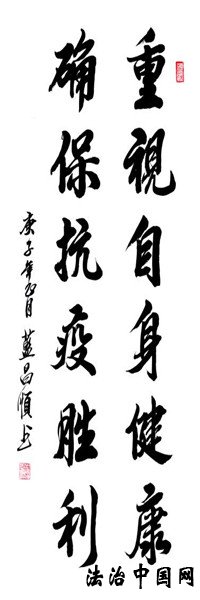 重視自身健康
确保抗疫胜利
庚子年正月 蓝昌順书
法治中国网